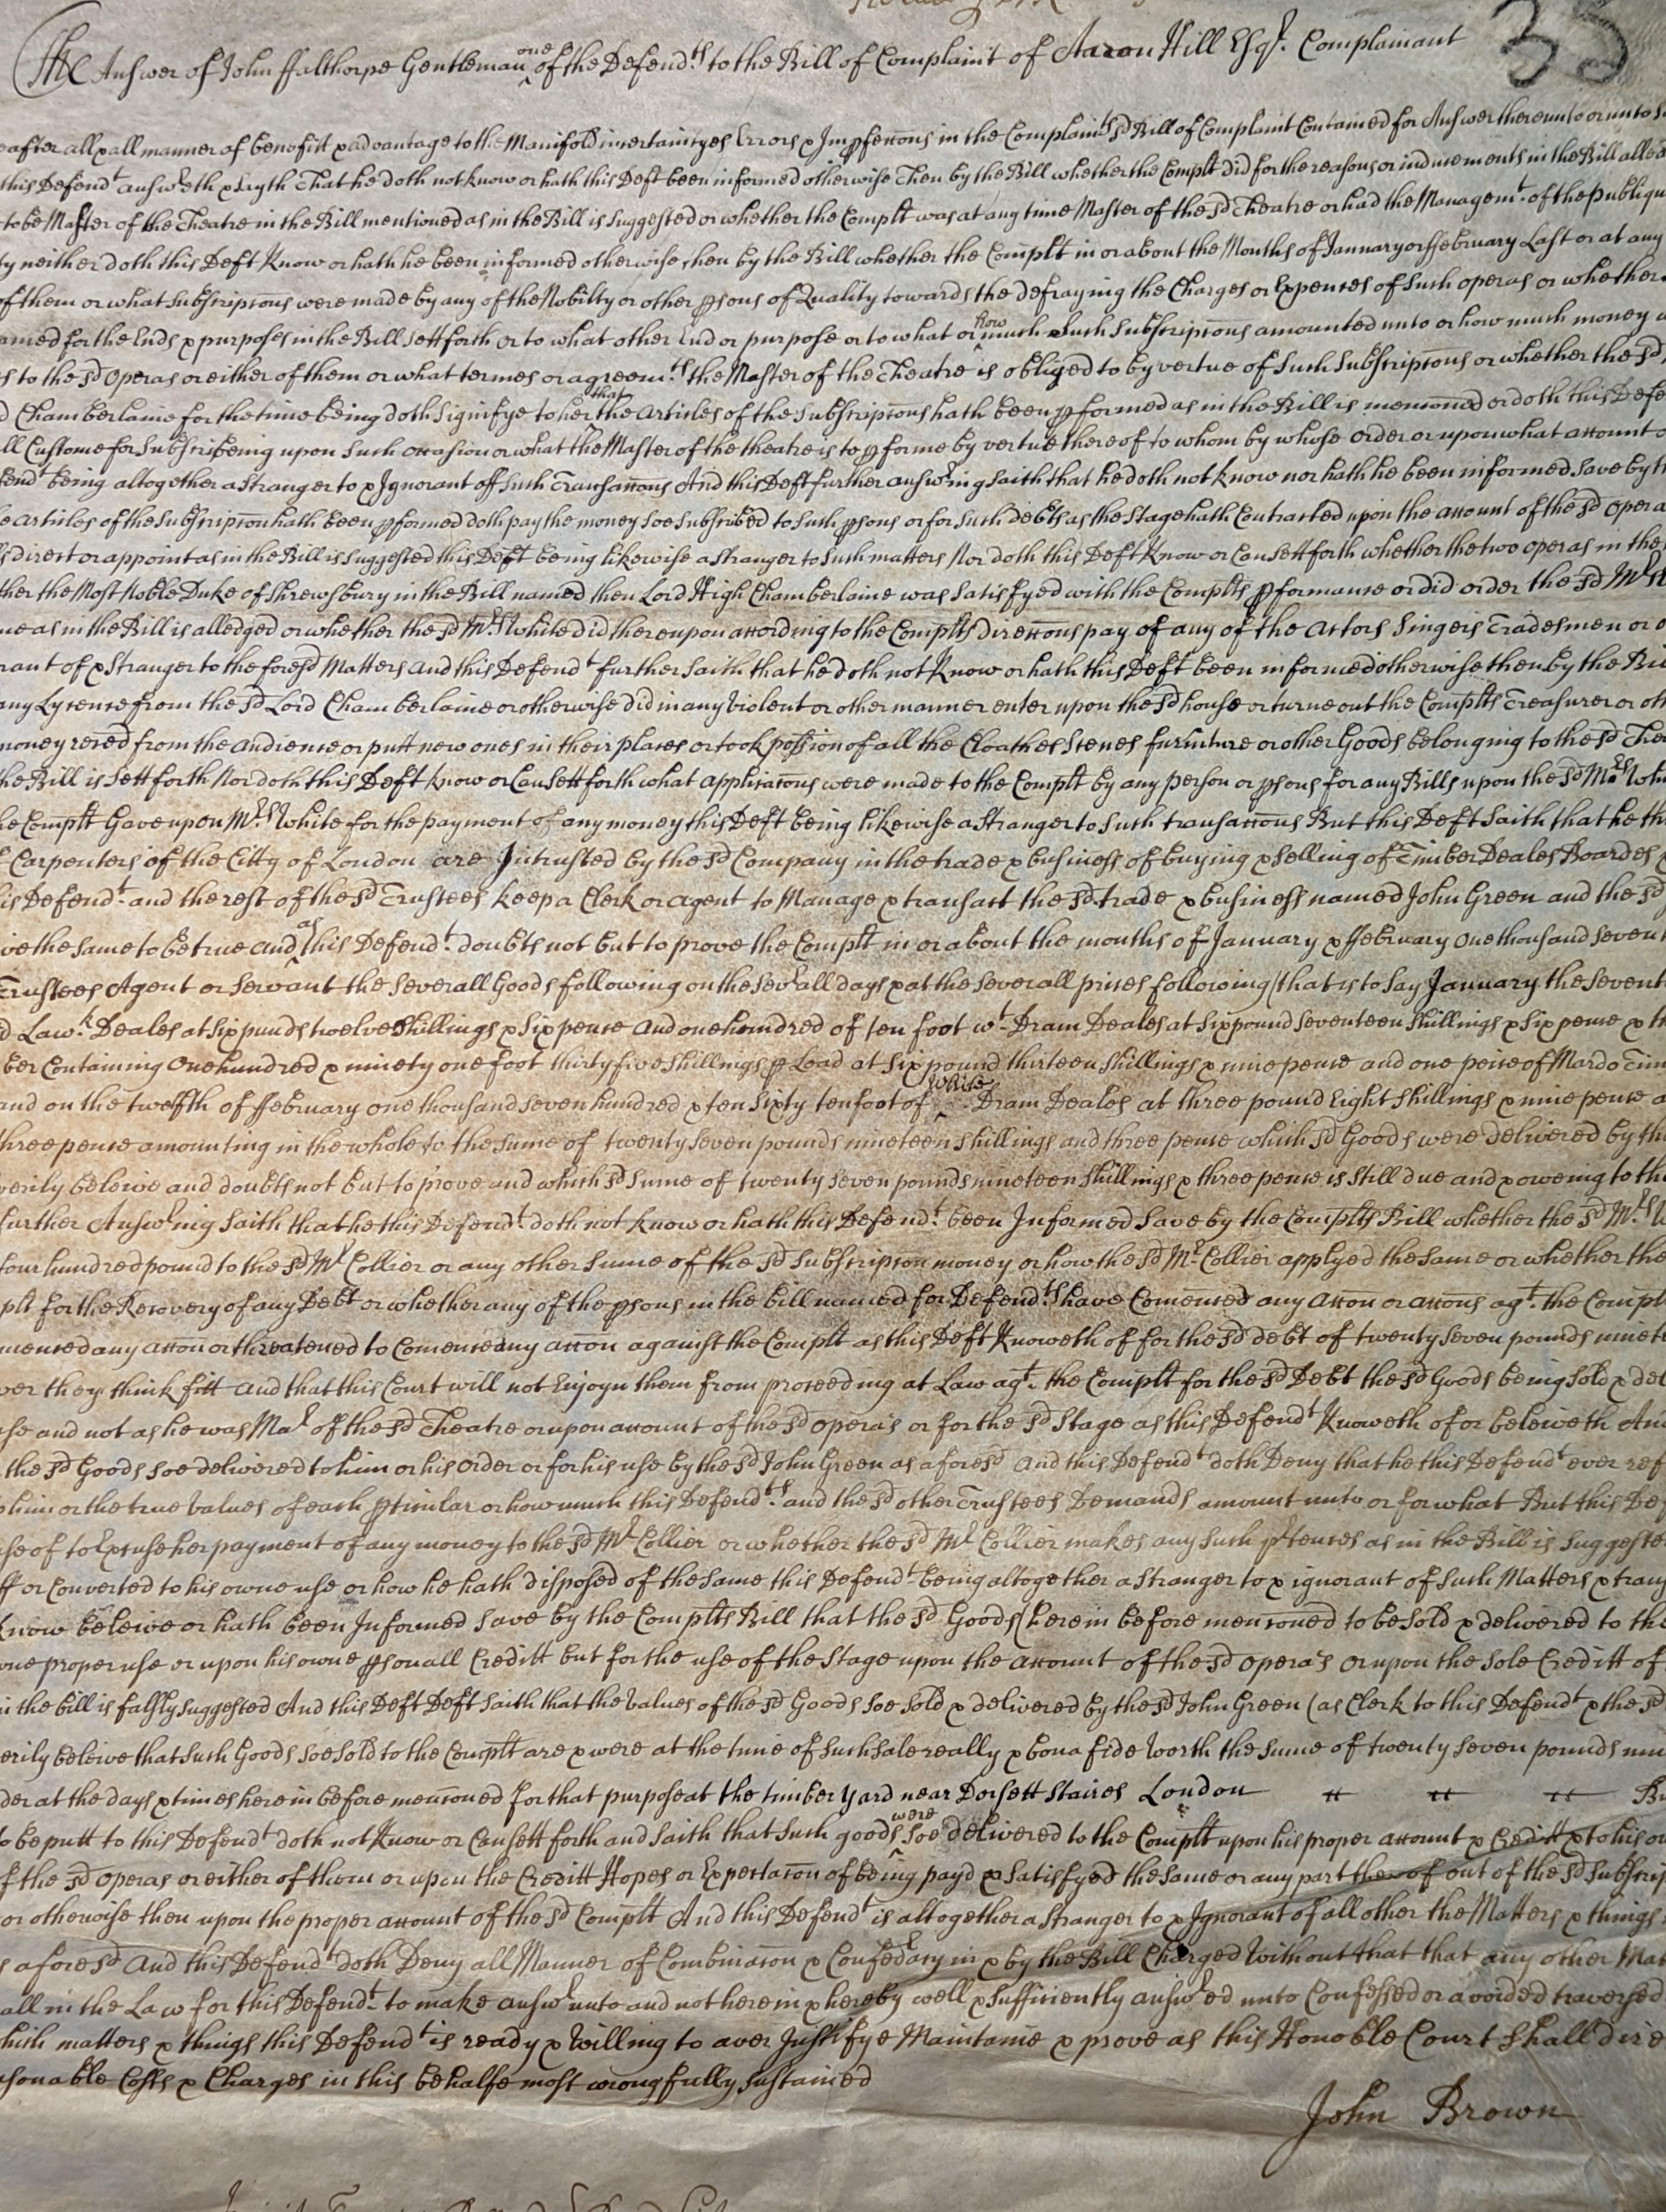 35
The Answer of John Ffalthorpe Gentleman one of the Defend.ts to the Bill of Complaint of Aaron Hill Esqr. Complainant
after all & all manner of benefitt & advantage to the Manifold incertaintyes Errors & Imp[er]feccons in the Complain.ts sd Bill of Complaint Contained for Answer thereunto or unto
this Defend.t answ.eth & sayth That he doth not know or hath this Deft been informed otherwise then by the Bill whether the Complt did for the reasons or inducements in the Bill
to be Master of the Theatre in the Bill mentioned as in the Bill is suggested or whether the Complt was at any time Master of the sd Theatre or had the Managem.t of the publiqu
neither doth this Deft Know or hath he been informed otherwise then by the Bill whether the Complt in or about the Months of January or ffebruary Last or at any
of them or what Subscripcons were made by any of the Nobilty or other psons of Quality towards the defraying the Charges or Expences of Such operas or whether
for the Ends & purposes in the Bill sett forth or to what other End or purpose or to what or how much Such Subscripcons amounted unto or how much money
to the sd Operas or either of them or what termes or agreem.ts the Master of the Theatre is obliged to by vertue of Such Subscripcons or whether the sd
Chamberlaine for the time being doth Signifye to her that the Articles of the Subscripcons hath been pformed as in the Bill is menconed or doth this Defe
Custome for Subscribeing upon Such occasion or what the Master of the theatre is to pforme by vertue thereof to whom by whose Order or upon what account
being altogether a Stranger to & Ignorant off Such Transaccons And this Deft further answ.ing saith that he doth not know nor hath he been informed Save by
Articles of the Subscripcon hath been pformed doth pay the money soe Subscribed to Such psons or for Such debts as the Stage hath Contracted upon the account of the sd Opera
direct or appoint as in the Bill is suggested this Deft being likewise a stranger to Such matters Nor doth this Deft Know or Can sett forth whether the two operas in the
the Most Noble Duke of Shrewsbury in the Bill named then Lord High Chamberlaine was Satisfyed with the Complts pformance or did order the sd Mrs
as in the Bill is alledged or whether the sd Mrs White did thereupon according to the Complts direccons pay of any of the Actors Singers Tradesmen or
of & Stranger to the foresd Matters And this Defend.t further Saith that he doth not Know or hath this Deft been informed otherwise then by the
any Lycence from the sd Lord Chamberlaine or otherwise did in any violent or other manner enter upon the sd house or turne out the Complts Treasurer or
money reced from the audience or putt new ones in their places or took possion of all the Cloathes Scenes furniture or other Goods belonging to the sd
the Bill is Sett forth Nor doth this Deft know or Can sett forth what applicacons were made to the Complt by any person or psons for any Bills upon the sd Mrs
Complt Gave upon Mrs White for the payment of any money this Deft being likewise a Stranger to Such transaccons But this Deft Saith that he
Carpenters of the Citty of London are Intrusted by the sd Company in the trade & business of buying & selling of Timber Deales Boardes
Defend.t and the rest of the sd Trustees keep a Clerk or agent to Manage & transact the sd trade & business named John Green and the sd
the same to be true and as this Defend.t doubts not but to prove the Complt in or about the months of January & ffebruary One thousand seven
Trustees Agent or Servant the severall Goods following on the sev.all days & at the severall prices following (that is to say January the sevent
Law.k Deales at six punds twelve shillings & six pence and one hundred of ten foot w.t Dram Deales at six pound seventeen shillings & six pence &
Containing One hundred & ninety one foot thirty five shillings p Load at six pound thirteen shillings & nine pence and one peice of Mardo
and on the twelfth of ffebruary one thousand seven hundred & ten Sixty ten foot of White Dram Deales at three pound Eight shillings & nine pence
three pence amounting in the whole to the sume of twenty seven pounds nineteen shillings and three pence which sd Goods were delivered by
verily beleive and doubts not but to prove and which sd sume of twenty seven pounds nineteen shillings & three pence is still due and & owening to
further Answ.ing saith that he this Defend.t doth not know or hath this Defend.t been Informed Save by the Complts Bill whether the sd Mrs
four hundred pound to the sd Mr Collier or any other sume of the sd Subscripcon money or how the sd Mr Collier applyed the same or whether the
plt for the Recovery of any Debt or whether any of the psons in the bill named for Defend.ts have Comenced any accon or accons ag.t the Compl
any accon or threatened to Comence any accon against the Complt as this Deft Knoweth of for the sd debt of twenty seven pounds ninete
they think fitt And that this Court will not Enjoyn them from proceeding at Law ag.t the Complt for the sd Debt the sd Goods being Sold &
and not as he was Ma.r of the sd Theatre or upon account of the sd opera's or for the sd Stage as this Defend.t Knoweth of or beleiveth
the sd Goods soe delivered to him or his Order or for his use by the sd John Green as aforesd And this Defend.t doth Deny that he this Defend.t ever ref
him or the true values of each pticular or how much this Defend.ts and the sd other Trustees Demands amount unto or for what But this Def
of to Excuse her payment of any money to the sd Mr Collier or whether the sd Mr Collier makes any Such p.tences as in the Bill is Suggeste
or Converted to his owne use or how he hath disposed of the same this Defend.t being altogether a stranger to & ignorant of Such Matters &
Know beleive or hath been Informed Save by the Complts Bill that the sd Goods (herein before menconed to be sold & delivered to the
proper use or upon his owne psonall Creditt but for the use of the Stage upon the account of the sd Opera's or upon the sole Creditt of
in the bill is falsly suggested And this Deft Deft saith that the values of the sd Goods soe sold & delivered by the sd John Green (as Clerk to this Defend.t & the sd
verily beleive that such Goods soe sold to the Complt are & were at the time of such sale really & bona fide Worth the sume of twenty seven pounds
at the days & times herein before menconed for that purpose at the timber yard near Dorsett Staires London
to be putt to this Defend.t doth not Know or Can sett forth and saith that such goods were soe delivered to the Complt upon his proper account & Creditt & to his
of the sd operas or either of them or upon the Creditt Hopes or Expectacon of being payd & Satisfyed the same or any part thereof out of the sd
or otherwise then upon the proper account of the sd Complt And this Defend.t is altogether a stranger to & Ignorant of all other the Matters & things
aforesd And this Defend.t doth Deny all Manner of Combinacon & Confed.acy in & by the Bill Charged Without that that any other Mat
all in the Law for this Defend.t to make answ.r unto and not herein & hereby well & sufficiently answ.ed unto Confessed or avoided traversed
which matters & things this Defend.t is ready & Willing to aver Justifye Maintaine & prove as this Honoble Court shall dire
Costs & Charges in this behalfe most wrongfully sustained
John Brown